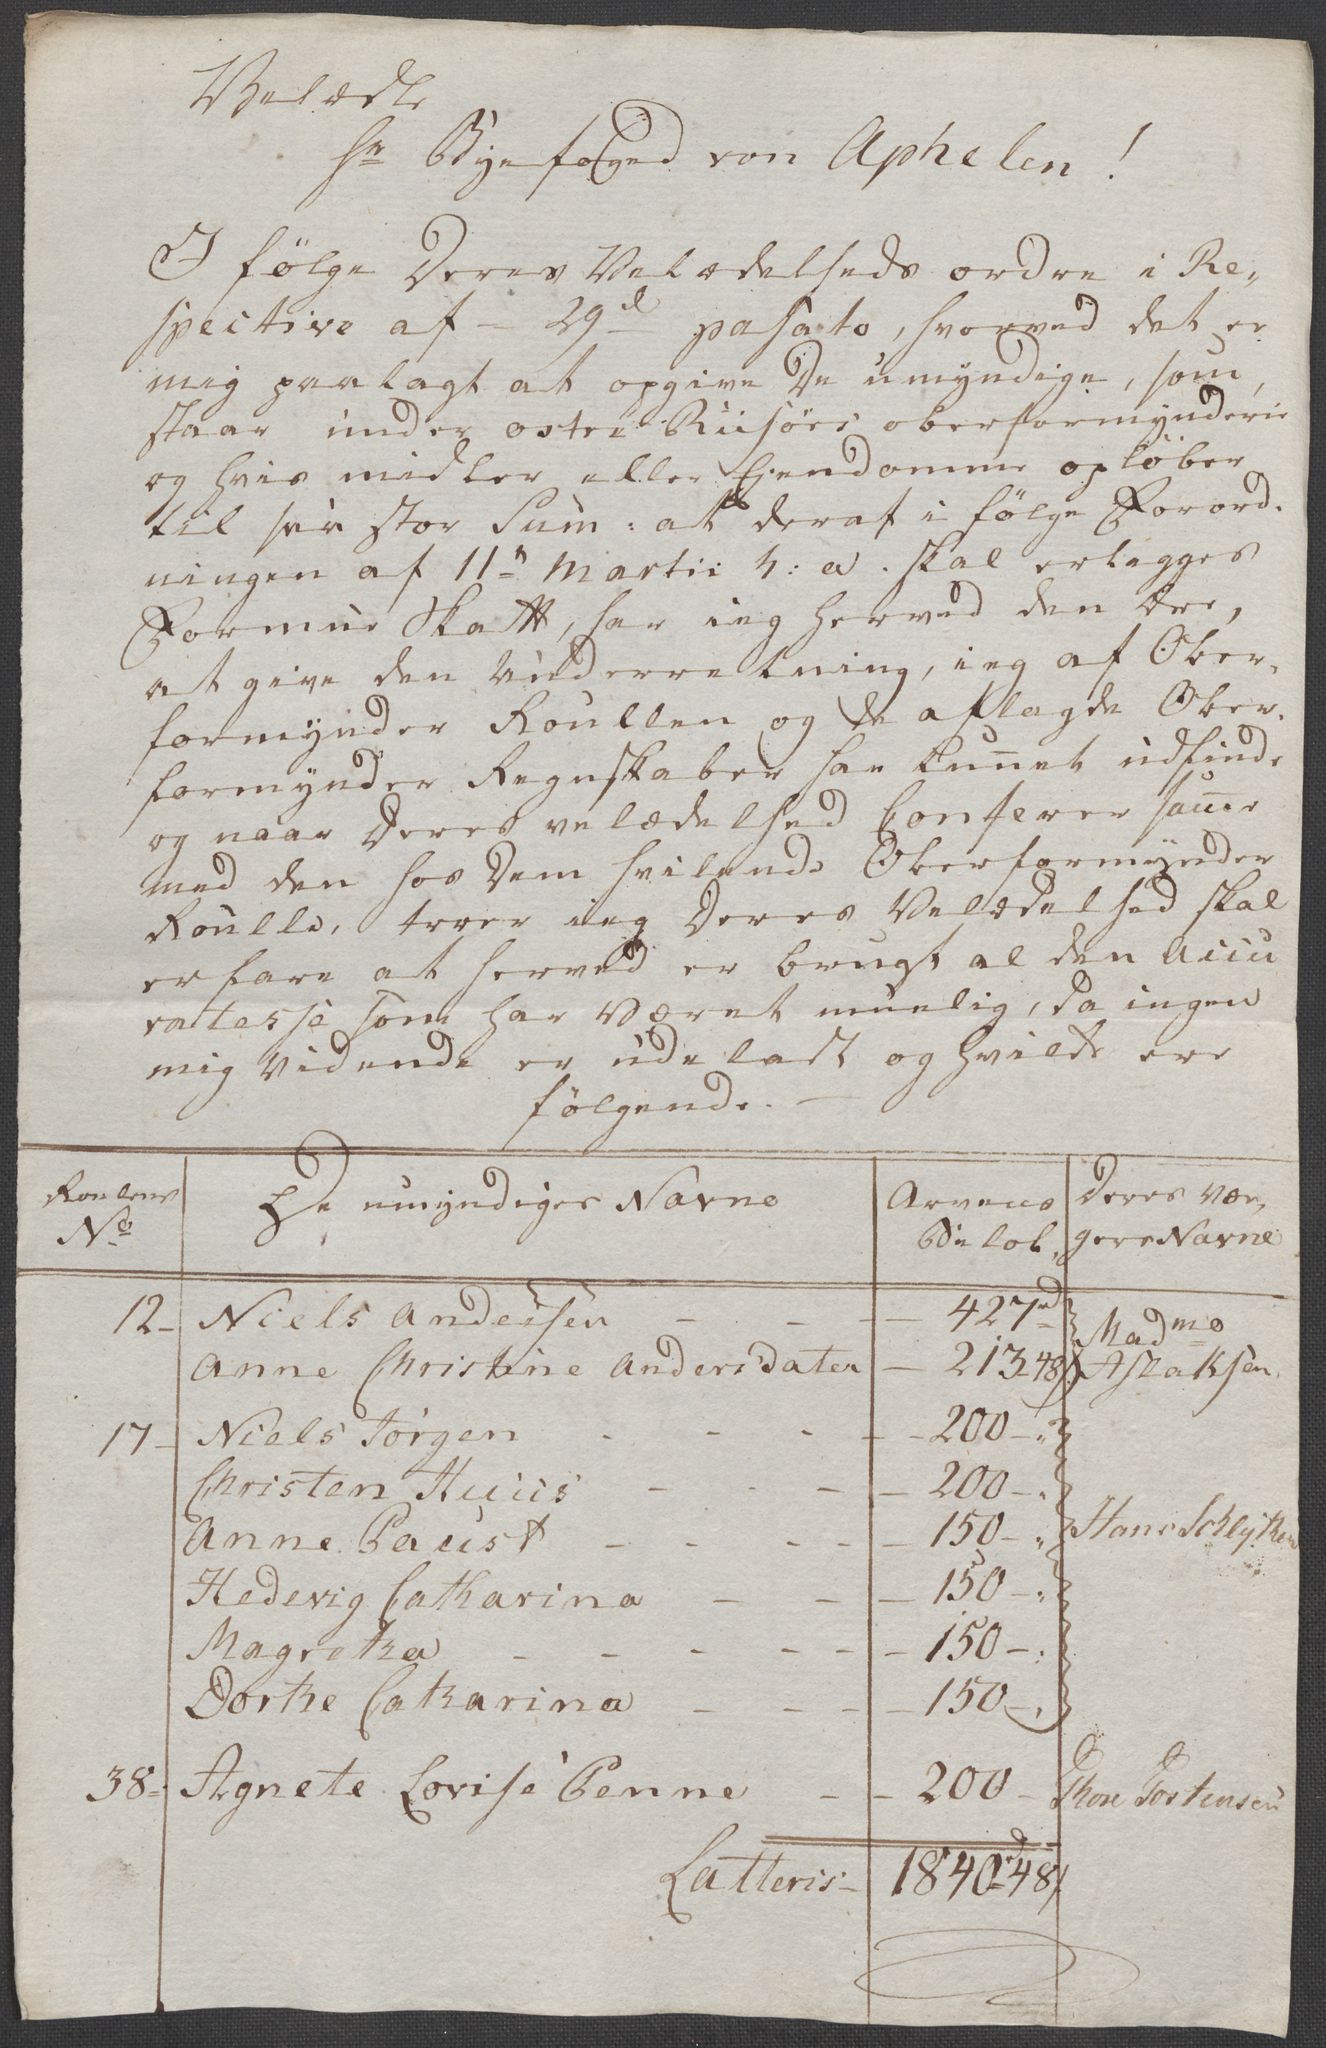 Velædle
Hr Byefoged von Aphelen!
I følge Deres Velædelheds ordre i Re,
spective af - 29d pasato, hvorved det er
mig paalagt at opgive De umyndige, som,
staar under oster Riisöers oberformynderie
og hvis midler eller Eiendomme opløber
til saa stor Sum: at deraf i følge Forord.
ningen af 11n Martii h: a. skal erlegges
Formue Skatt, har ieg herved den ære,
at give den Underretning, ieg af Ober,
formynder Roullen og de aflagde Ober,
formynder Regnskaber har kunnet udfinde
og naar Deres velædelhed Conferer samme
med den hos Dem hvilende Oberformynder
Roulle, troer ieg Deres Velædelhed skal
erfare at herved er brugt al den accu
ratesse som har været muelig, da ingen
mig vidende er udeladt og hvilke ere
følgende. —
Roulens No | De umyndiges Navne | Arvens Beløb, | Deres vær, gers Navne
12 - Niels Andersen - - - 427rd
Madme Aslaksen
Anne Christine Andersdater - 213 " 48s
17 - Niels Jörgen - - - - 200 - "
Christen Huus - - - - 200 - "
Anne Paust - - - - 150 - " Hans Schlytter
Hedevig Catharina - - - 150 - "
Magretha - - - - - 150 - "
Dorthe Catharina - - - - 150 - "
38 - Agnete Lovise Penne - - 200 - Thore Tostensen
Latteris - 1840rd 48s